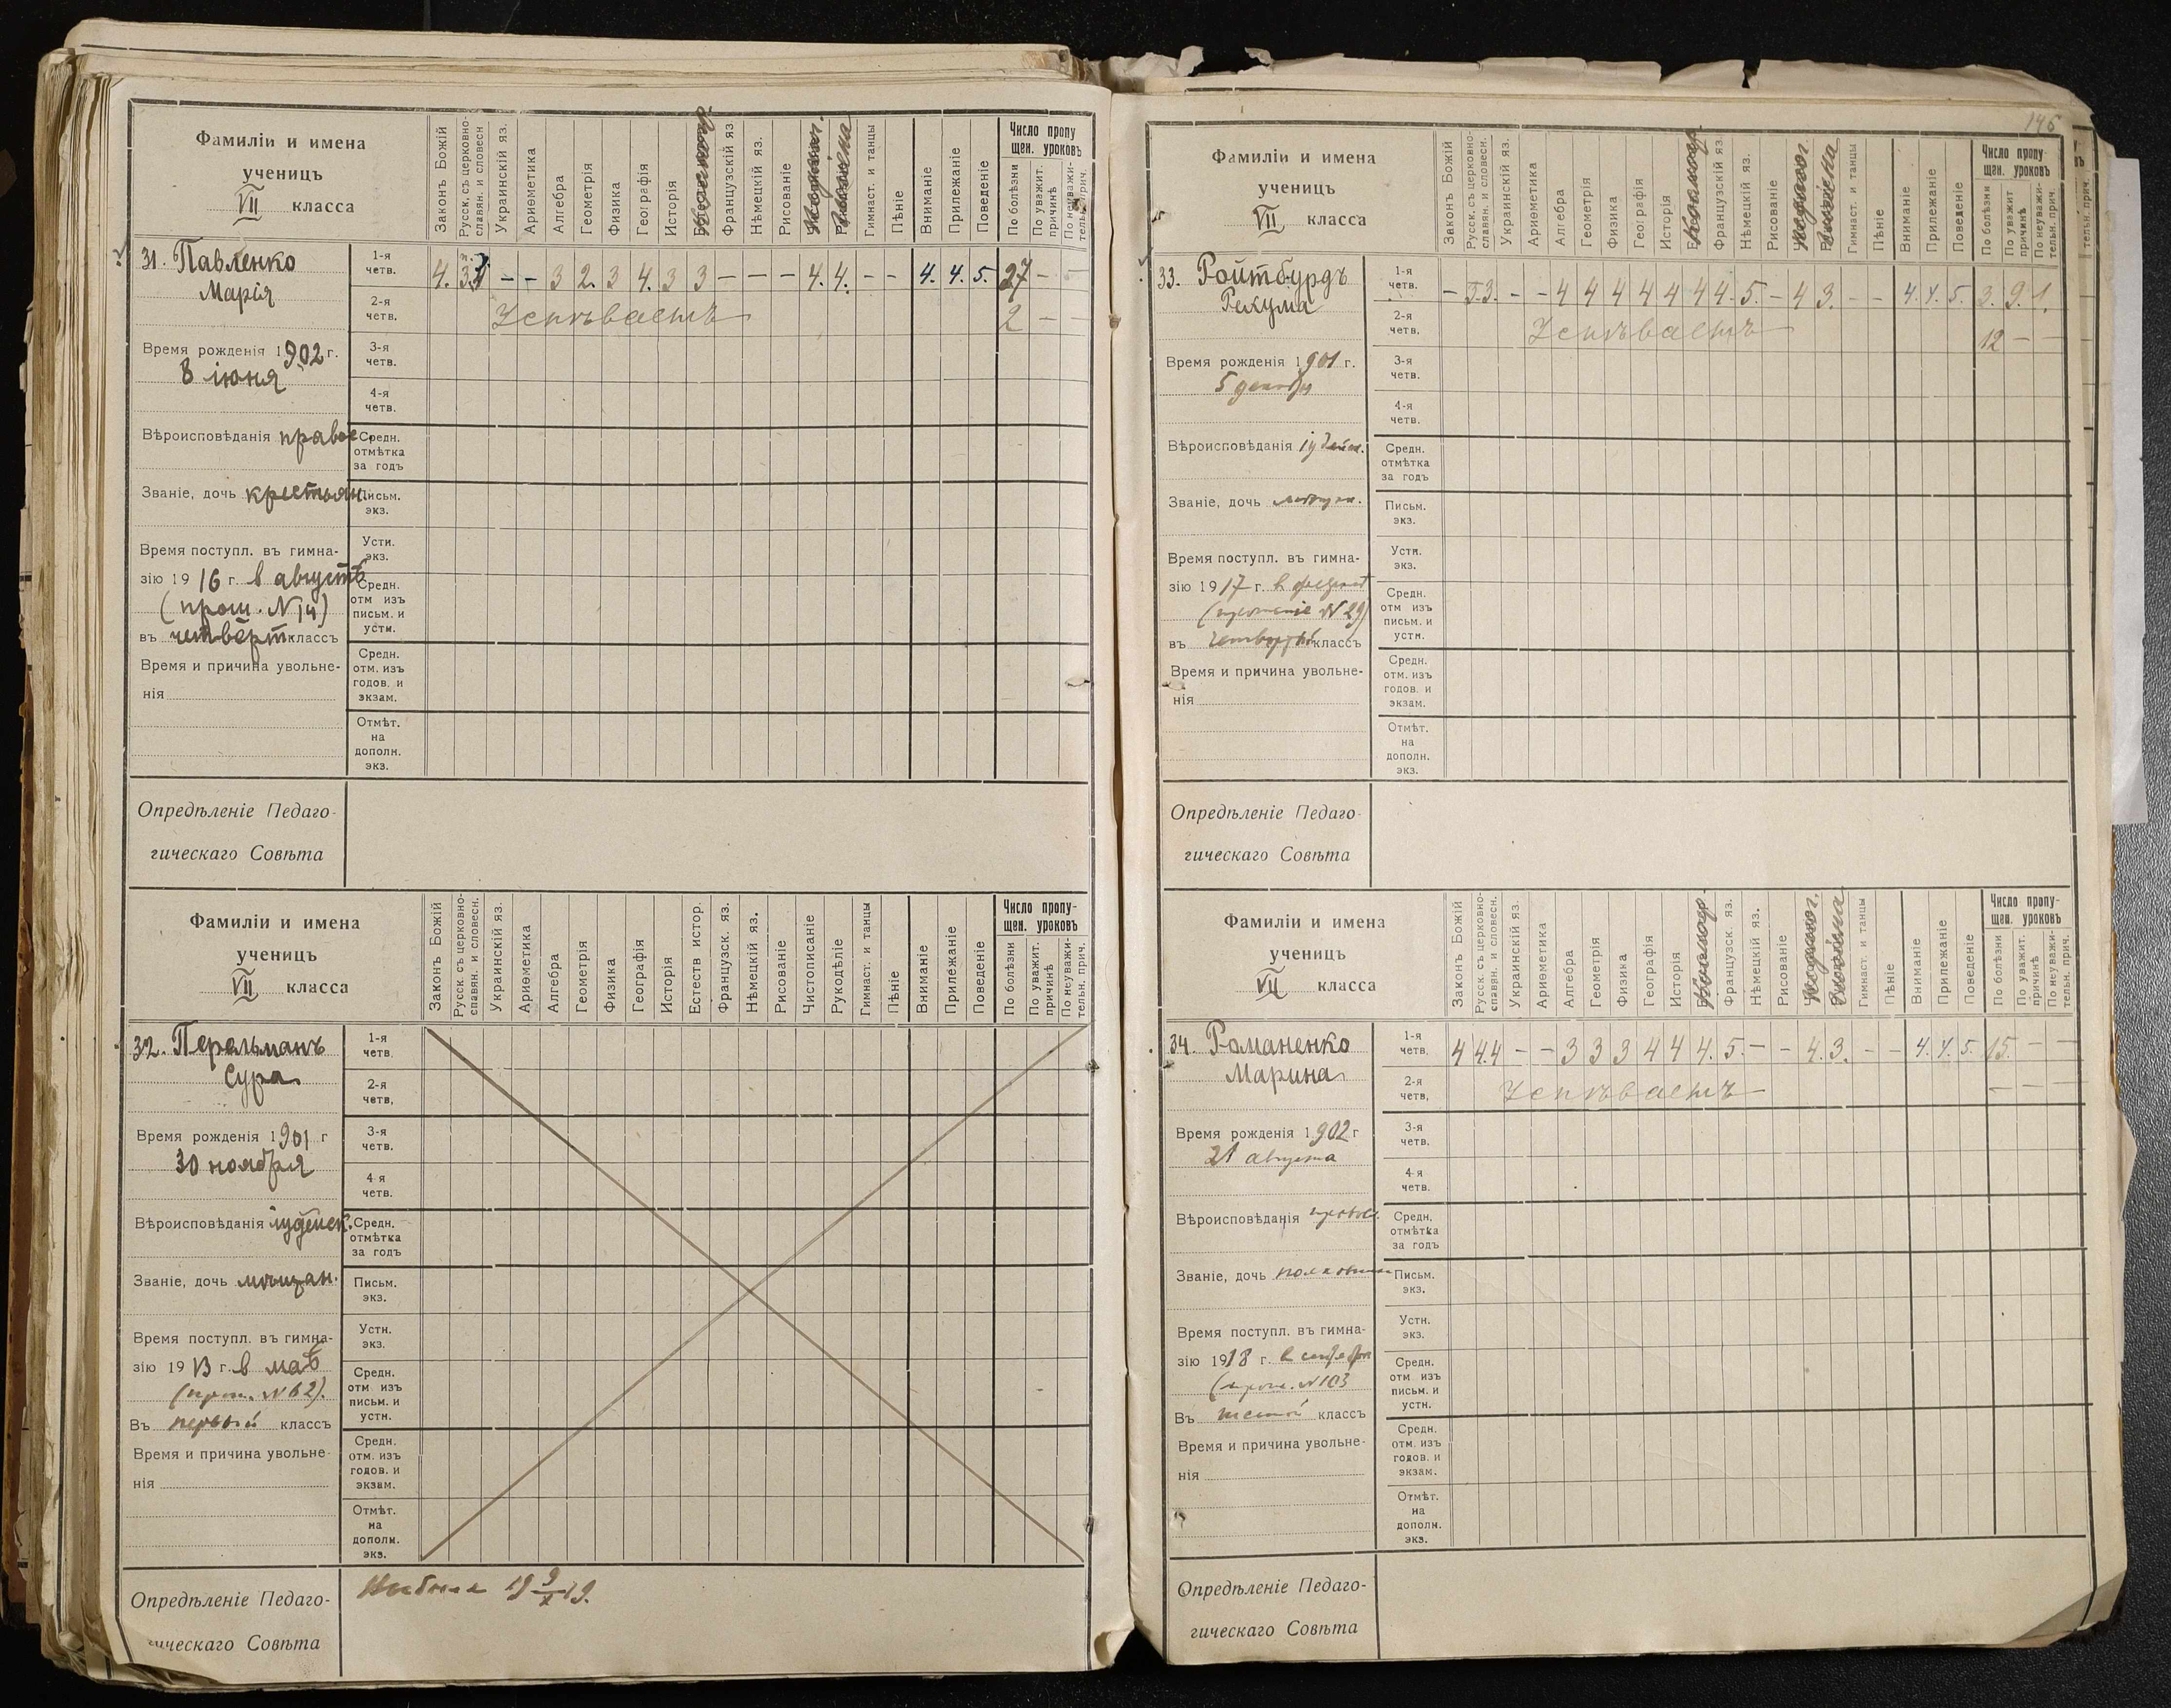 Фамиліи и имена
ученицъ
VII класса
Законъ Божій
Русск. съ церковно-
славян. и словесн
Украинскій яз.
Ариѳметика
Алгебра
Геометрія
Физика
Географія
Исторія
Французскій яз
Нѣмецкій яз.
Рисованіе
Гимнаст. и танцы
Пѣніе
Вниманіе
Прилежаніе
Поведеніе
Число пропу
щен. уроковъ
По болѣзни
По уважит.
причинѣ
По неуважи-
тельн. прич.
31. Павленко
Марія
1-я
четв.
4. 3 – – 3 2. 3 4. 3 3 – – – 4. 4. – – 4. 4. 5. 27 – –
2-я
четв.
Успѣваетъ 2 – –
Время рожденія 1902 г.
8 іюня
3-я
четв.
4-я
четв.
Вѣроисповѣданія правос.
Средн.
отмѣтка
за годъ
Званіе, дочь крестьян.
Письм.
экз.
Время поступл. въ гимна-
зію 1916 г. в августѣ
(прош. N 14)
въ четверт классъ
Устн.
экз.
Средн.
отм изъ
письм. и
устн.
Время и причина увольне-
нія
Средн.
отм. изъ
годов. и
экзам.
Отмѣт.
на
дополн.
экз.
Опредѣленіе Педаго-
гическаго Совѣта
Фамиліи и имена
ученицъ
VII класса
Законъ Божій
Русск. съ церковно-
славян. и словесн.
Украинскій яз.
Ариѳметика
Алгебра
Геометрія
Физика
Географія
Исторія
Естеств истор.
Французск. яз.
Нѣмецкій яз.
Рисованіе
Чистописаніе
Рукодѣліе
Гимнаст. и танцы
Пѣніе
Вниманіе
Прилежаніе
Поведеніе
Число пропу-
щен. уроковъ
По болѣзни
По уважит.
причинѣ
По неуважи-
тельн. прич.
32. Перельманъ
Сура
1-я
четв.
2-я
четв,
Время рожденія 1901 г
30 ноября
3-я
четв.
4-я
четв.
Вѣроисповѣданія іудейск.
Средн.
отмѣтка
за годъ
Званіе, дочь мѣщан.
Письм.
экз.
Время поступл. въ гимна-
зію 1913 г. в маѣ
(прош. N 62).
Въ первый классъ
Устн.
экз.
Средн.
отм изъ
письм. и
устн.
Время и причина увольне-
нія
Средн.
отм. изъ
годов. и
экзам.
Отмѣт.
на
дополн.
экз.
Опредѣленіе Педаго-
гическаго Совѣта
Выбыла 19 9/X 19.
146
Фамиліи и имена
ученицъ
VII класса
Законъ Божій
Русск. съ церковно-
славян. и словесн.
Украинскій яз.
Ариѳметика
Алгебра
Геометрія
Физика
Географія
Исторія
Французскій яз.
Нѣмецкій яз.
Рисованіе
Гимнаст. и танцы
Пѣніе
Вниманіе
Прилежаніе
Поведеніе
Число пропу
щен. уроковъ
По болѣзни
По уважит
причинѣ
По неуважи-
тельн. прич.
33. Ройтбурдъ
Рекума
1-я
четв.
– 3.3. – – 4 4 4 4 4 4 4. 5. – 4 3. – – 4. 4. 5. 3. 9. 1.
2-я
четв,
Успѣваетъ 12 – –
Время рожденія 1901 г.
5 декабря
3-я
четв.
4-я
четв.
Вѣроисповѣданія іудейск.
Средн.
отмѣтка
за годъ
Званіе, дочь мѣщан.
Письм.
экз.
Время поступл. въ гимна-
зію 1917 г. в август
(прошеніе N 29)
въ четвертый классъ
Устн.
экз.
Средн.
отм изъ
письм. и
устн.
Время и причина увольне-
нія
Средн.
отм. изъ
годов. и
экзам.
Отмѣт.
на
дополн.
экз.
Опредѣленіе Педаго-
гическаго Совѣта
Фамиліи и имена
ученицъ
VII класса
Законъ Божій
Русск. съ церковно-
славян. и словесн.
Украинскій яз.
Ариѳметика
Алгебра
Геометрія
Физика
Географія
Исторія
Французск. яз.
Нѣмецкій яз.
Рисованіе
Гимнаст. и танцы
Пѣніе
Вниманіе
Прилежаніе
Поведеніе
Число пропу-
щен. уроковъ
По болѣзни
По уважит.
причинѣ
По неуважи-
тельн. прич.
34. Романенко
Марина
1-я
четв,
4 4.4 – – 3 3 3 4 4 4. 5. – – 4. 3. – – 4. 4. 5. 15. – –
2-я
четв,
Успѣваетъ – – –
Время рожденія 1902 г
21 августа
3-я
четв.
4-я
четв.
Вѣроисповѣданія правосл.
Средн,
отмѣтка
за годъ
Званіе, дочь полковника
Письм.
экз.
Время поступл. въ гимна-
зію 1918 г. в сентябрѣ
(прош. N 103
Въ шестой классъ
Устн.
экз.
Средн.
отм изъ
письм. и
устн.
Время и причина увольне-
нія
Средн.
отм. изъ
годов. и
экзам.
Отмѣт.
на
дополн.
экз.
Опредѣленіе Педаго-
гическаго Совѣта